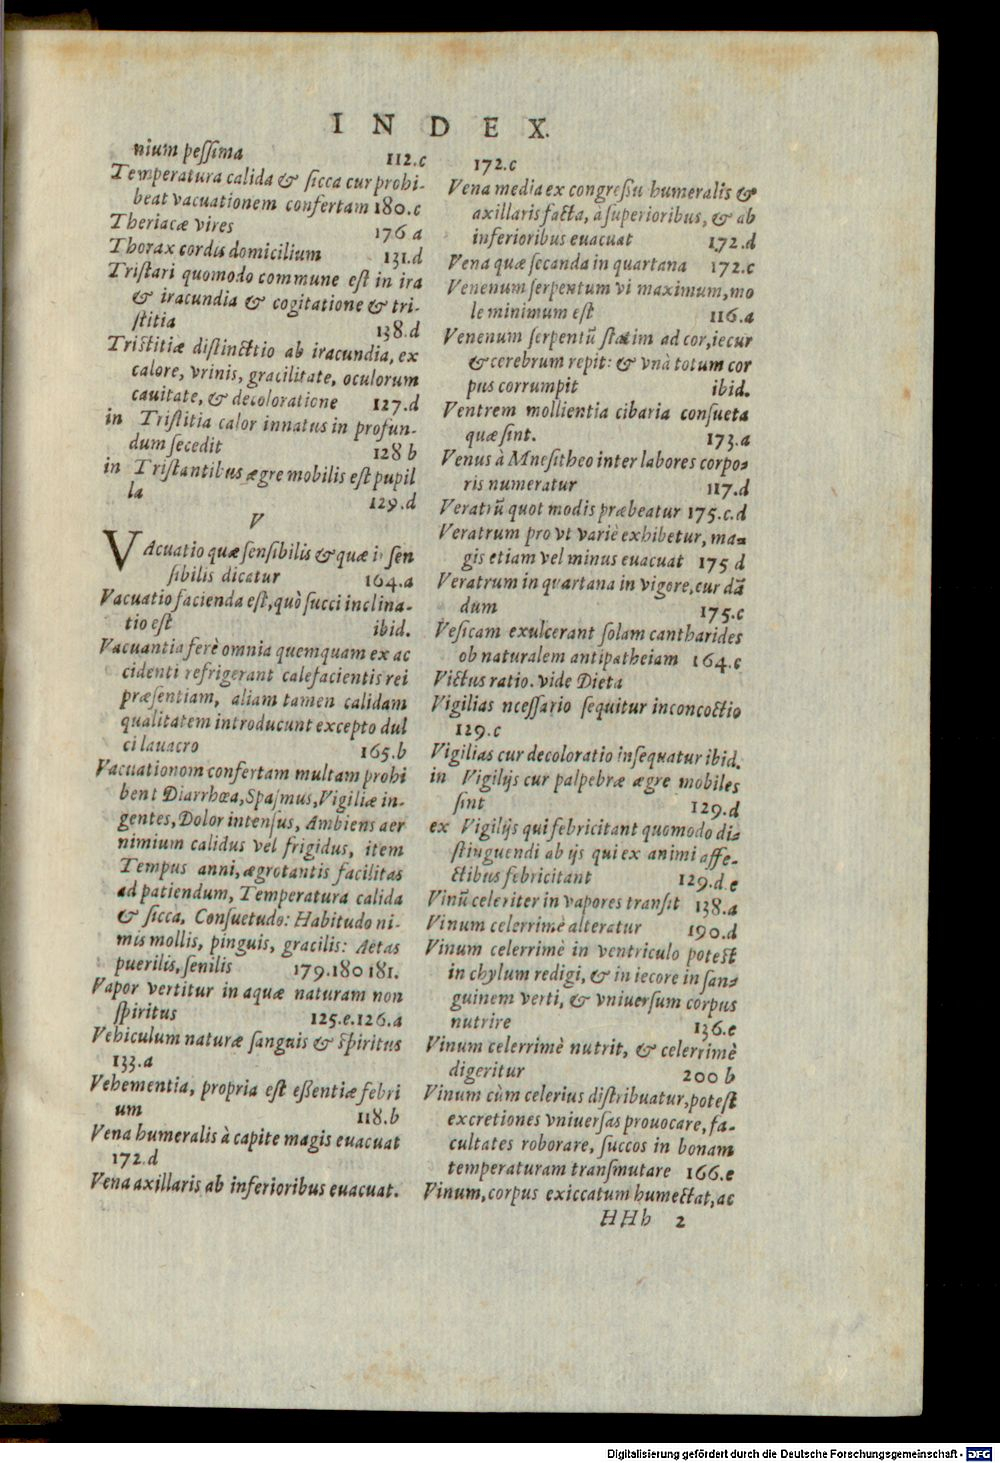 INDEX.
nium peſſima 112.c
Temperatura calida & ſicca cur prohi-
beat vacuationem confertam 180.c
Theriacæ vires 176 a
Thorax cordis domicilium 131.d
Triſtari quomodo commune eſt in ira
& iracundia & cogitatione & tri-
ſtitia 138.d
Triſtitiæ diſtinctio ab iracundia, ex
calore, vrinis, gracilitate, oculorum
cauitate, & decoloratione 127.d
in Triſtitia calor innatus in profun-
dum ſecedit 128 b
in Triſtantibus ægre mobilis eſt pupil
la 129.d
V
VAcuatio quæ ſenſibilis & quæ iſen
ſibilis dicatur 164.a
Vacuatio facienda eſt, quò ſucci inclina-
tio eſt ibid.
Vacuantia ferè omnia quemquam ex ac
cidenti refrigerant calefacientis rei
præſentiam, aliam tamen calidam
qualitatem introducunt excepto dul
ci lauacro 165.b
Vacuationom confertam multam prohi
bent Diarrhœa, Spaſmus, Vigiliæ in-
gentes, Dolor intenſus, Ambiens aer
nimium calidus vel frigidus, item
Tempus anni, ægrotantis facilitas
ad patiendum, Temperatura calida
& ſicca, Conſuetudo: Habitudo ni-
mis mollis, pinguis, gracilis: Aetas
puerilis, ſenilis 179.180 181.
Vapor vertitur in aquæ naturam non
ſpiritus 125.e.126.a
Vehiculum naturæ ſanguis & ſpiritus
133.a
Vehementia, propria eſt eßentiæ febri
um 118.b
Vena humeralis à capite magis euacuat
172.d
Vena axillaris ab inferioribus euacuat.
172.c
Vena media ex congreßu humeralis &
axillaris facta, à ſuperioribus, & ab
inferioribus euacuat 172.d
Vena quæ ſecanda in quartana 172.c
Venenum ſerpentum vi maximum, mo
le minimum eſt 116.a
Venenum ſerpentũ ſtatim ad cor, iecur
& cerebrum repit: & vnà totum cor
pus corrumpit ibid.
Ventrem mollientia cibaria conſueta
quæ ſint. 173.a
Venus à Mneſitheo inter labores corpo-
ris numeratur 117.d
Veratrũ quot modis præbeatur 175.c.d
Veratrum pro vt variè exhibetur, ma-
gis etiam vel minus euacuat 175 d
Veratrum in quartana in vigore, cur dã
dum 175.c
Veſicam exulcerant ſolam cantharides
ob naturalem antipatheiam 164.c
Victus ratio. vide Dieta
Vigilias nceſſario ſequitur inconcoctio
129.c
Vigilias cur decoloratio inſequatur ibid.
in Vigilijs cur palpebræ ægre mobiles
ſint 129.d
ex Vigilijs qui febricitant quomodo di-
ſtinguendi ab ijs qui ex animi affe-
ctibus febricitant 129.d e
Vinũ celeriter in vapores tranſit 138.a
Vinum celerrimè alteratur 190.d
Vinum celerrimè in ventriculo poteſt
in chylum redigi, & in iecore in ſan-
guinem verti, & vniuerſum corpus
nutrire 136.e
Vinum celerrimè nutrit, & celerrimè
digeritur 200 b
Vinum cùm celerius diſtribuatur, poteſt
excretiones vniuerſas prouocare, fa-
cultates roborare, ſuccos in bonam
temperaturam tranſmutare 166.e
Vinum, corpus exiccatum humectat, ac
HHh 2
Digitalisierung gefördert durch die Deutsche Forschungsgemeinschaft - DFG